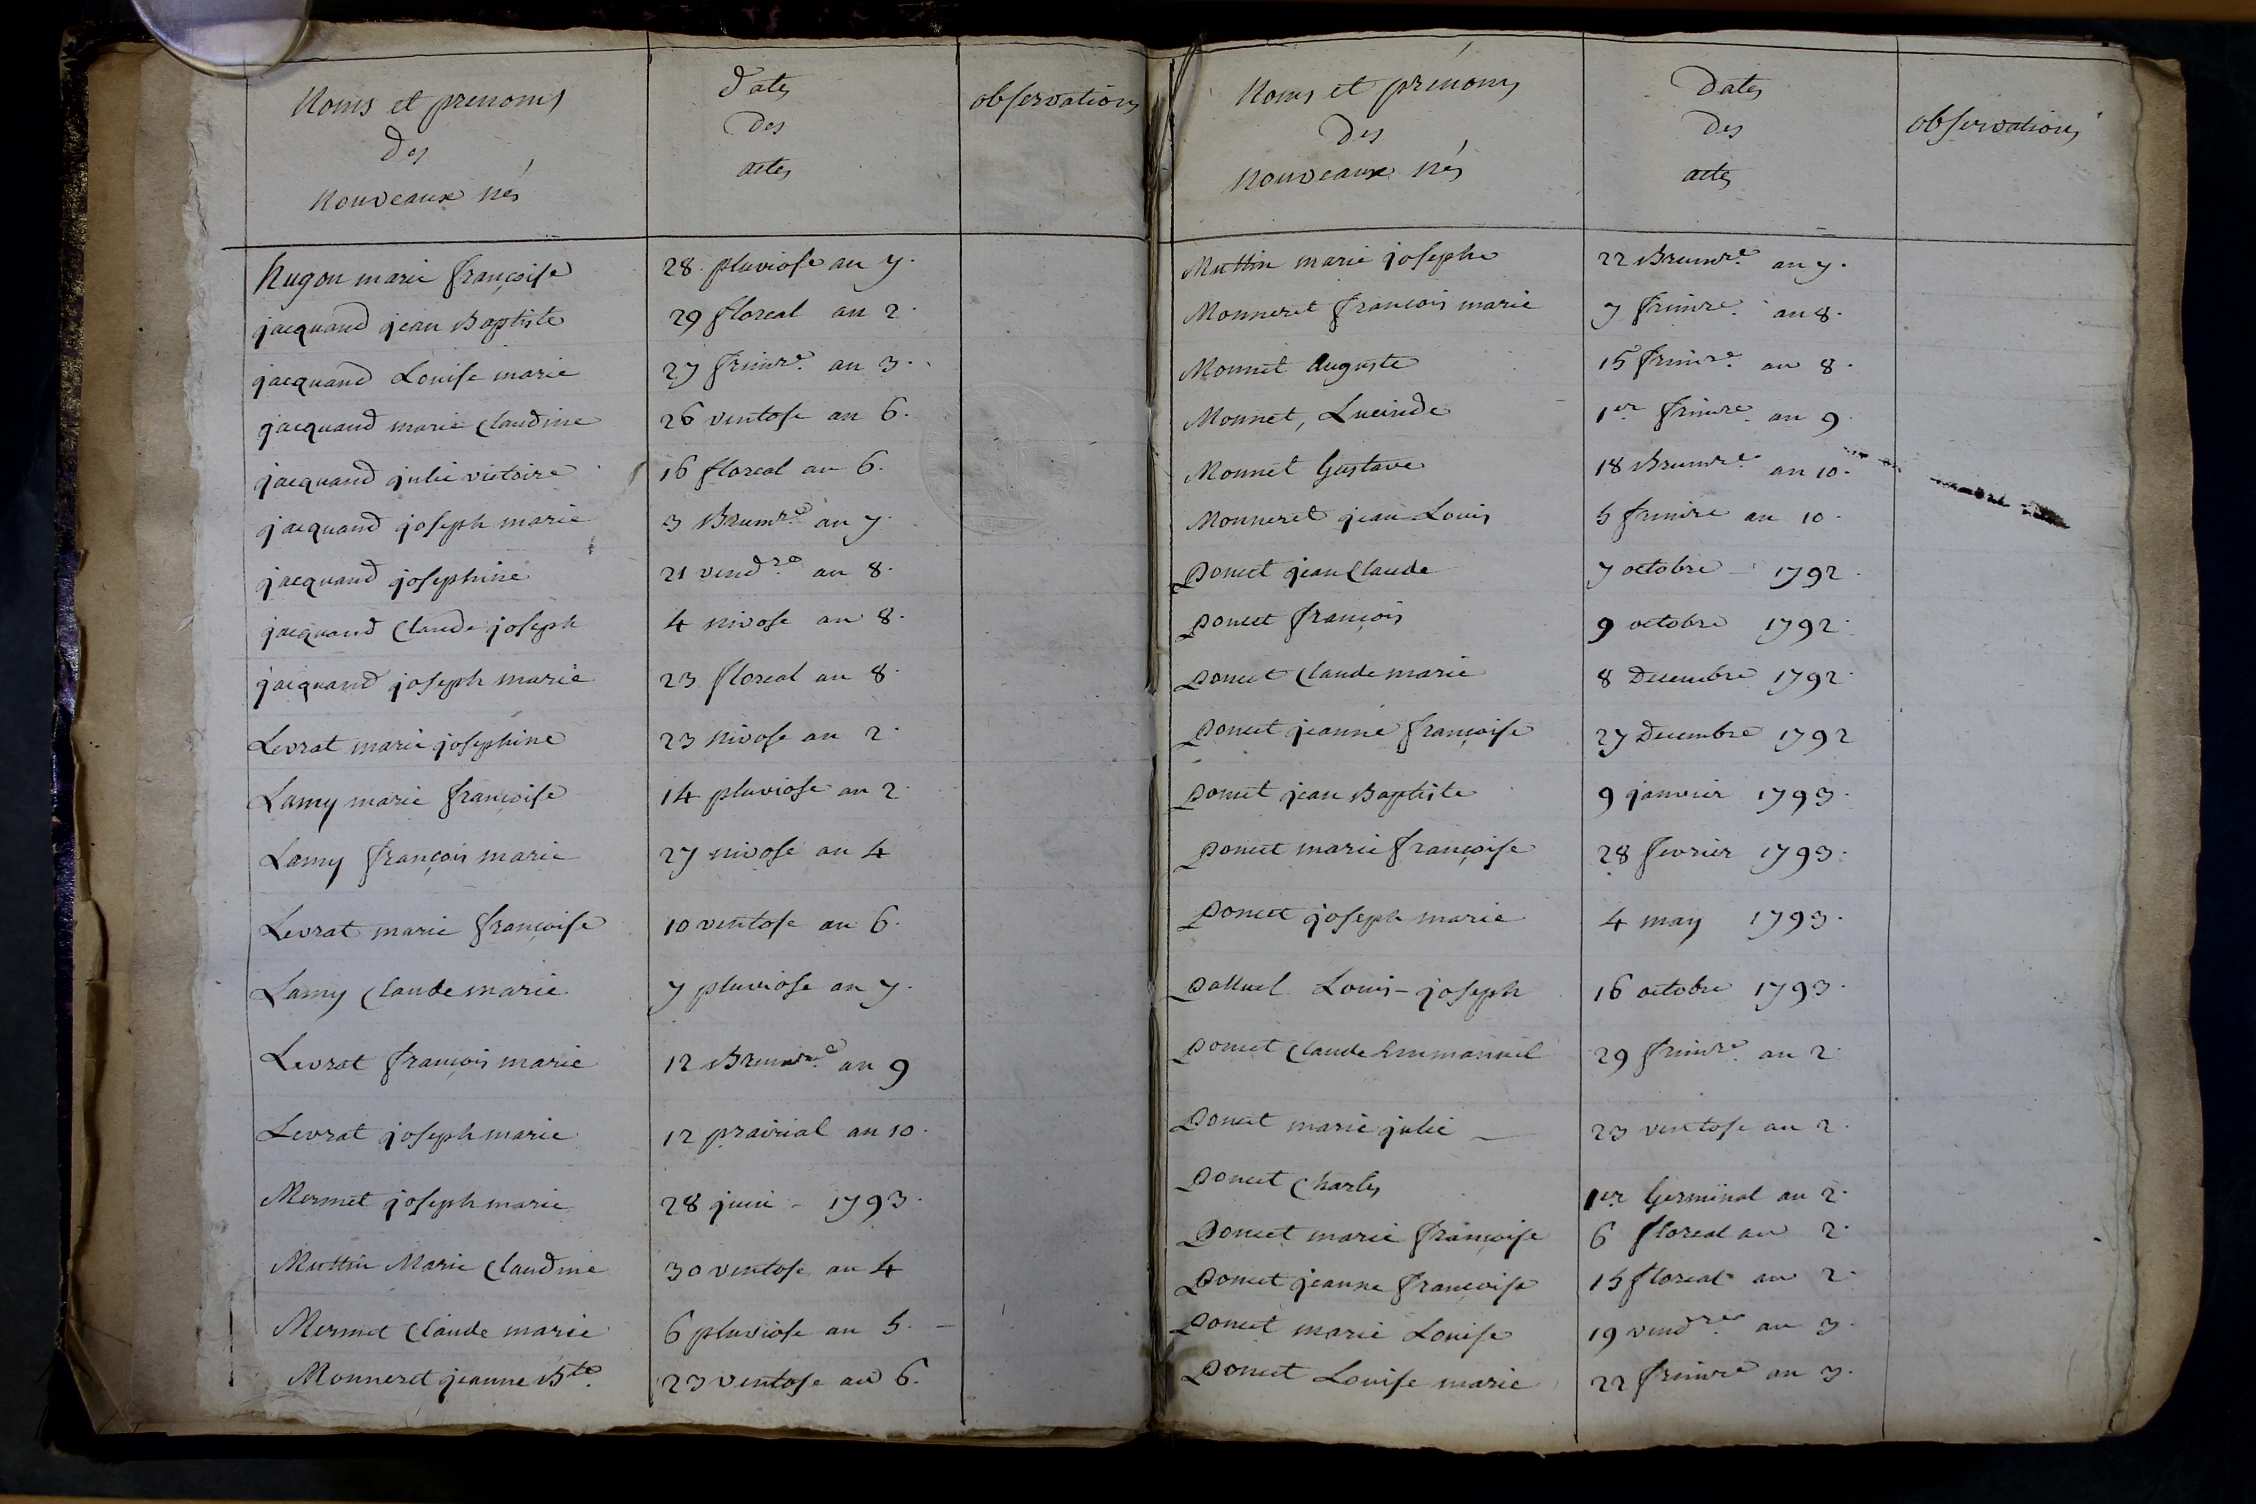 Noms et prenoms
Des
Nouveaux nés
Dates
Des
actes
observations
Hugon marie françoise 28 pluviose an 7.
jacquand jean Baptiste 29 floreal an 2.
jacquand Louise marie 27 frimre. an 3.
jacquand marie Claudine 26 ventose an 6.
jacquand julie victoire 16 floreal an 6.
jacquand joseph marie 3 Brumre. an 7.
jacquand josephine 21 vendre. an 8.
jacquand Claude joseph 4 nivose an 8.
jacquand joseph marie 23 floreal an 8.
Levrat marie josephine 23 nivose an 2.
Lamy marie françoise 14 pluviose an 2.
Lamy françois marie 27 nivose an 4
Levrat marie françoise 10 ventose an 6.
Lamy Claude marie 7 pluviose an 7.
Levrat françois marie 12 Brumre. an 9
Levrat joseph marie 12 prairial an 10.
Mermet joseph marie 28 juin - 1793.
Muttin Marie Claudine 30 ventose an 4
Mermet Claude marie 6 pluviose an 5. -
Monneret jeanne Bte. 23 ventose an 6.
Noms et prénoms
Des
Nouveaux nés
Dates
Des
actes
observations
Muttin marie josephe 22 Brumre. an 7.
Monneret françois marie 7 frimre. an 8.
Monnet Auguste 15 frimre. an 8.
Monnet, Lucinde 1er frimre. an 9
Monnet Gustave 18 Brumre. an 10.
Monneret jean Louis 5 frimre an 10.
Poncet jean Claude 7 octobre - 1792.
Poncet françois 9 octobre 1792.
Poncet Claude marie 8 Decembre 1792.
Poncet jeanne françoise 27 Decembre 1792
Poncet jean Baptiste 9 janvier 1793.
Poncet marie françoise 28 fevrier 1793.
Poncet joseph marie 4 may 1793.
Louis - joseph 16 octobre 1793.
Poncet Claude Emmanuel 29 frimre. an 2.
Poncet marie julie - 23 ventose an 2.
Poncet Charles 1er Germinal an 2.
Poncet marie françoise 6 floreal an 2.
Poncet jeanne françoise 15 floreal an 2.
Poncet marie Louise 19 vendre. an 3.
Poncet Louise marie 22 frimre an 3.